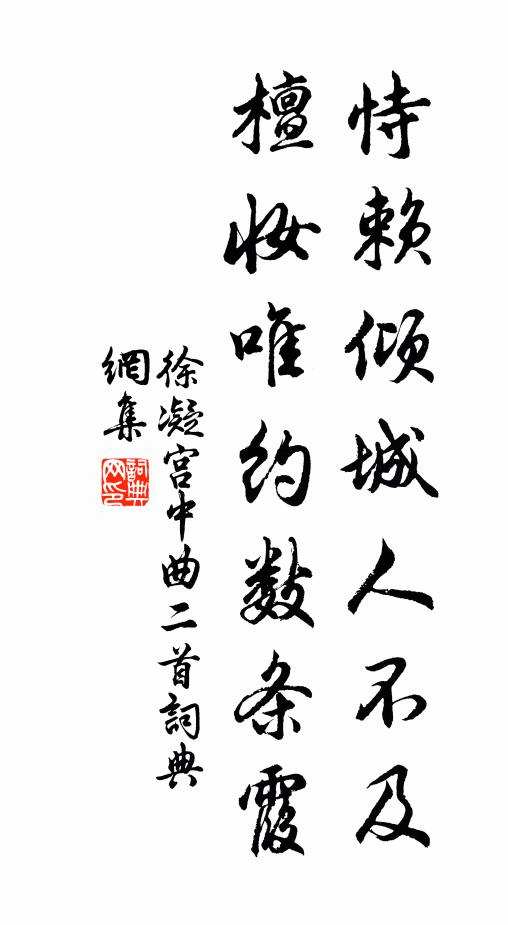 恃赖倾城人不及
檀妆唯约数条霞
徐凝宫中曲二首詞典
網集
詞典网印